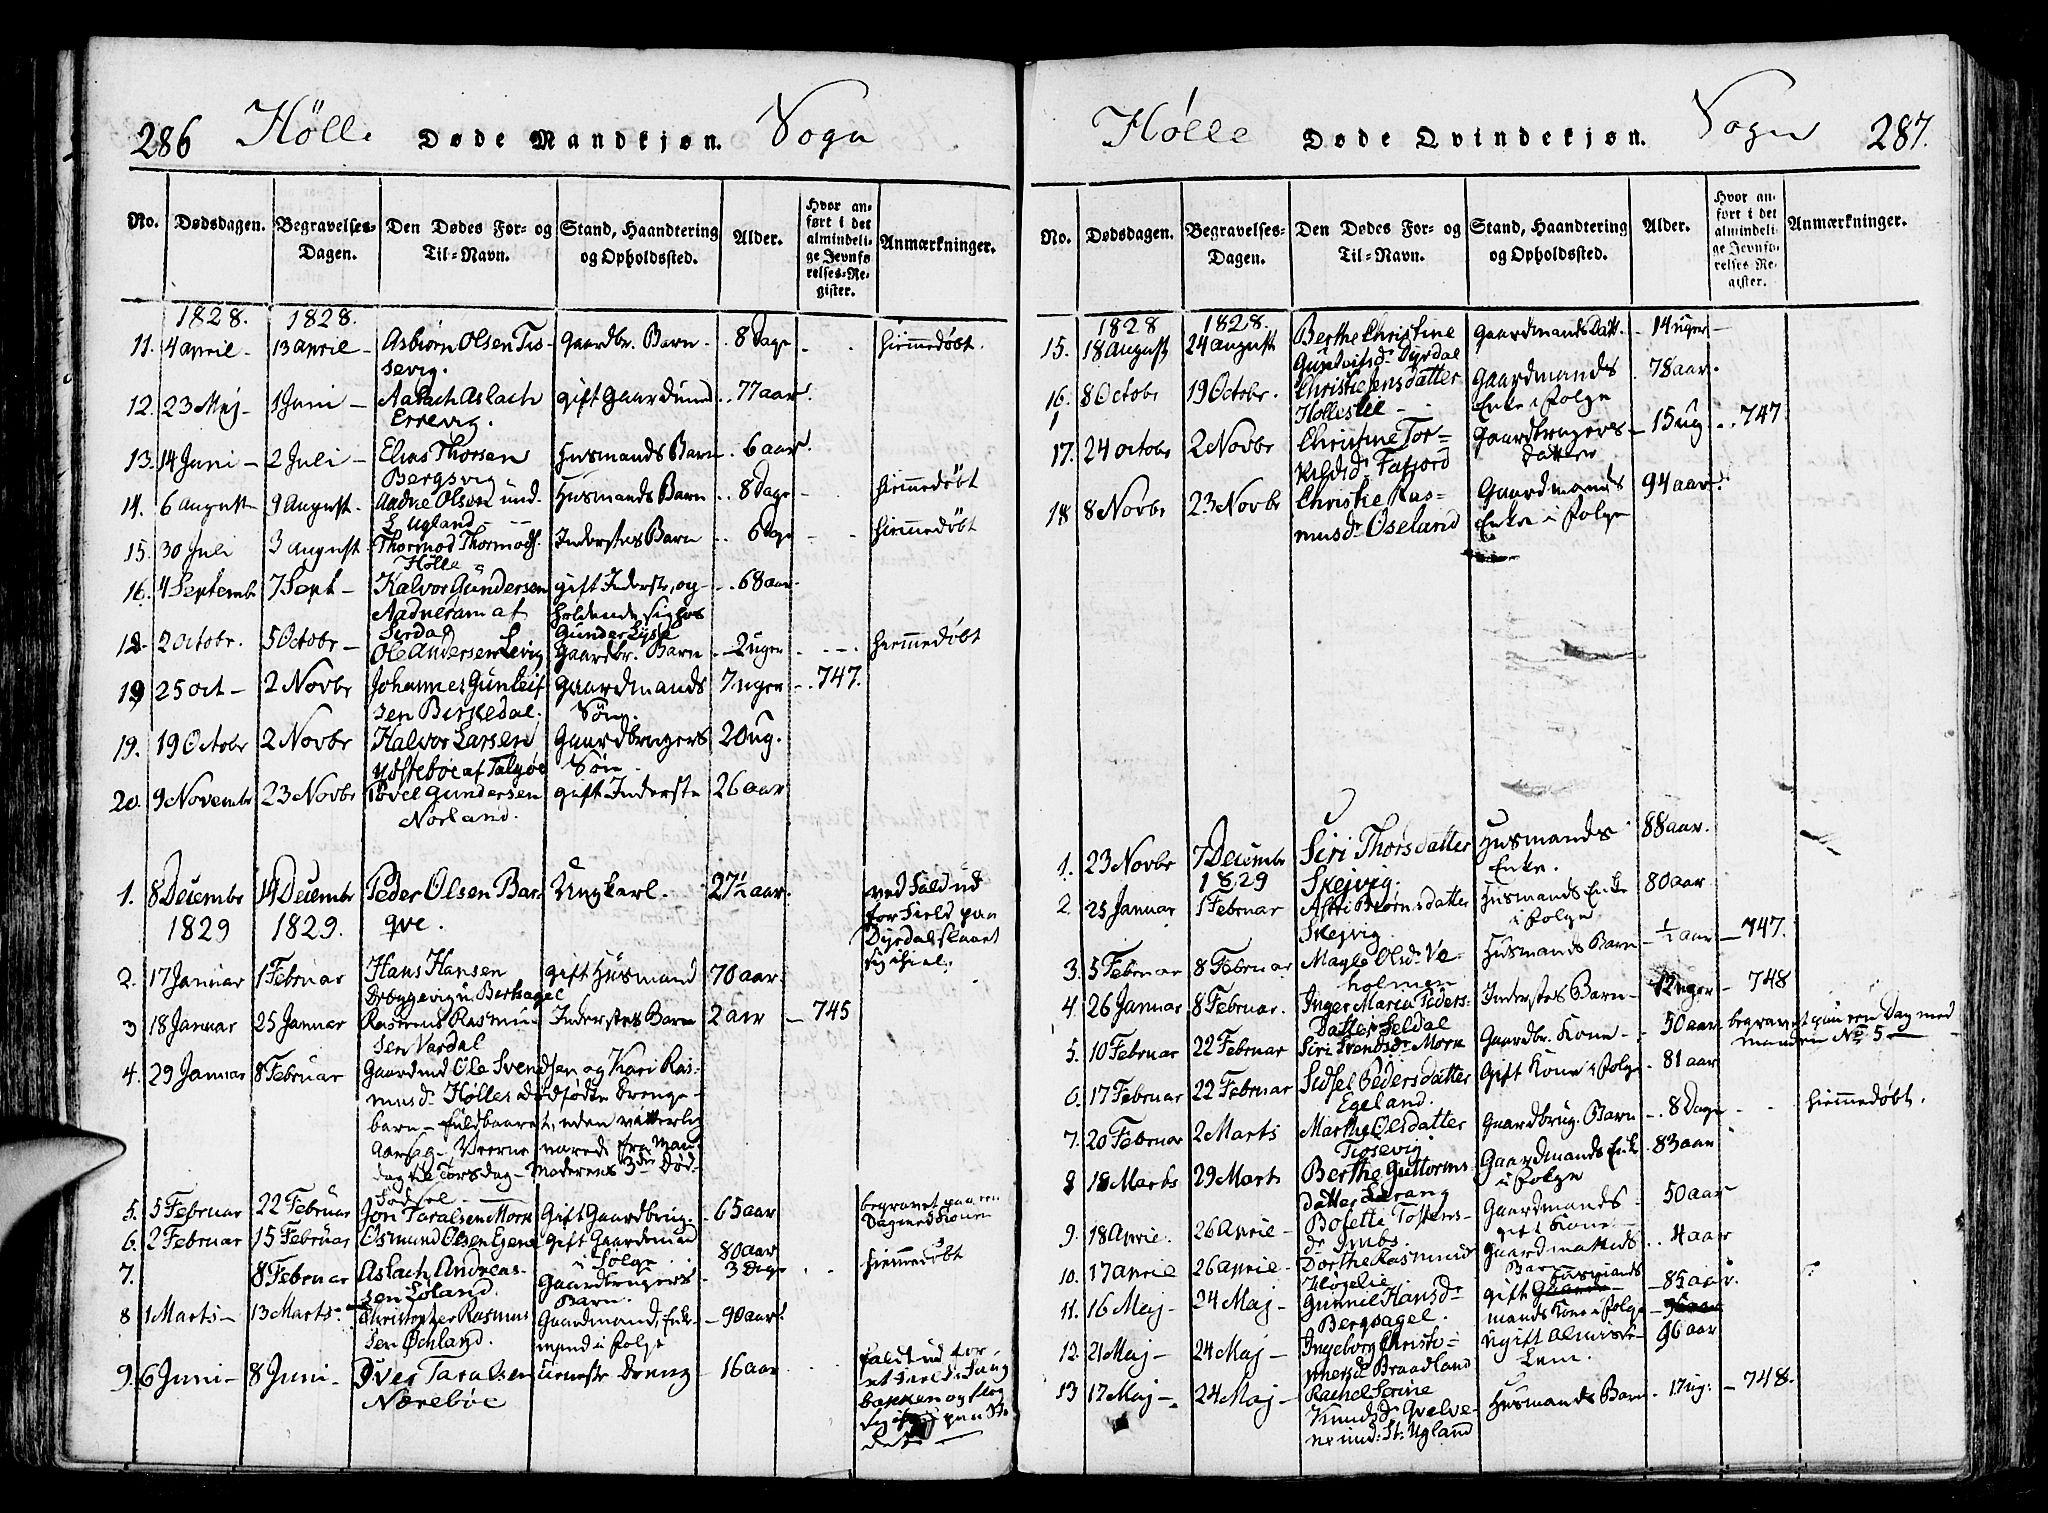 286 Hölle Døde Mandkjøn. Sogn
No. Dødsdagen. Begravelses-Dagen. Den Dødes For- og Til-Navn. Stand, Haandtering og Opholdssted. Alder. Hvor anført i det almindelige Jevnførelses-Register. Anmærkninger.
1828. 1828.
11. 4 April - 13 April - Asbiørn Olsen Tiosevig. Gaardbr. Barn - 8 Dage hiemmedøbt.
12. 23 Maj - 1 Juni - Aslach Aslach Errevig. gift Gaardmd 77 aar
13. 14 Juni - 2 Juli - Elias Thorsen Bergsvig Husmands Barn 6 aar
14. 6 August - 9 August - Aadne Olsen und. L. Ugland Husmands Barn 8 Dage hiemmedøbt
15. 30 Juli 3 August Thormod Thormods. Hölle Inderstes Barn 6 Dage hiemmedøbt
16. 4 Septembr 7 Sept - Halvor Gundersen Aadneram af Sirdal gift Inderste, op- holdende sig hos Gunder Lysse 68 aar
18. 2 Octobr. 5 Octobr - Ole Andersen Levig Gaardbr. Barn 2 uger hiemmedøbt
19 25 Oct - 2 Novbr Johannes Gunleif sen Birkedal. Gaardmands Søn. 7 uger - 747.
19. 19 Octobr 2 Novbr Halvor Larsen Ydstebøe af Talgøe Gaardbrugers Søn 20 ug.
20. 9 Novembr 23 Novbr Tovel Gundersen Norland. gift Inderste 26 aar
1. 8 Decembr 14 Decembr Peder Olsen Bar- qve. Ungkarl. 27½ aar. ved Fald ud for Field paa Dyrdal slaaet sig ihiel.
1829 1829.
2. 17 Januar 1 Februar Hans Hansen u. Bersagel gift Husmand 70 aar
3 18 Januar 25 Januar Rasmus Rasmus sen Vardal Inderstes Barn 2 aar - 745
4. 29 Januar 8 Februar Gaardmd Ole Svendsen og Kari Ras- musdr. Hölles dødfødte Drenge- barn - fuldbaaret, uden vitterlig Aarsag - Veerne varede fra Man- dag til Torsdag - Moderens 3die Død- fødsel -
5. 5 Februar 22 Februar Jon Taralsen Mork Gift Gaardbrug. 65 aar begravet paa een Dag med Konen
6. 2 Februar 15 Februar Osmund Olsen Egeland gift Gaardmand i Folge 80 aar
7. 8 Februar Aslach Andreas- sen Løland. Gaardbrugers Barn. 3 Dage hiemmedøbt
8 1 Marts - 13 Marts - Christopher Rasmus sen Øehland. Gaardmand, Enke- mand i Folge 90 aar
9. 6 Juni - 8 Juni - Iver Taralsen Nærebøe Tieneste Dreng 16 aar faldt ud for et Field i bakken og slog sig paa
Hölle Døde Qvindekjøn. Sogn 287.
No. Dødsdagen. Begravelses-Dagen. Den Dødes For- og Til-Navn. Stand, Haandtering og Opholdssted. Alder. Hvor anført i det almindelige Jevnførelses-Register. Anmærkninger.
1828 1828.
15. 18 August 24 August Berthe Christine Gunleifsdr. Dyrdal Gaardmands Datt. 14 uger
16. 8 Octobr 19 Octobr. Christie Jensdatter Hölleslie Gaardmands Enke i Folge 78 aar.
17. 24 Octobr 2 Novbr Christine Tor- kildsdr. Fafjord Gaardbrugers Datter 15 ug 747
18 8 Novbr 23 Novbr Christie Ras- musdr. Øseland Gaardmands Enke i Folge 94 aar
1. 23 Novbr 7 Decembr Siri Thorsdatter Skejvig. Husmands Enke. 88 aar.
1829
2. 25 Januar 1 Februar Astri Biørnsdatter Skejvig. Husmands Enke i Folge 80 aar
3. 5 Februar 8 Februar Magle Olsdr. Va- holmen Husmands Barn ½ aar 747.
4. 26 Januar 8 Februar. Inger Maria Peders- Datter Seldal Inderstes Barn - 12 uger - 748
5. 10 Februar 22 Februar Siri Svendsdr. Mork Gaardbr. Kone - 50 aar begravet paa een Dag med manden No 5
6. 17 Februar 22 Februar Sidsel Pedersdatter Egeland. Gift Kone i Folge 81 aar
7. 20 Februar 2 Marts Marthe Olsdatter Tiosevig Gaardbrug. Barn 8 Dage hiemmedøbt.
8 18 Marts 29 Marts Berthe Guttorms- datter Lerang Gaardmands Enke i Folge 83 aar
9. 18 April. 26 April - Bolette Tostens- dr. Imbs. Gaardmands gift Kone 50 aar
10. 17 April 26 April - Dorthe Rasmusdr Høgelie Gaardmands Barn 4 aar
11. 16 Maj - 24 Maj - Gunnil Hansdr. Bergsagel. gift Husmands Kone i Folge 85 aar.
12. 21 Maj - 24 Maj - Ingeborg Christo- phersdr. Braadland Ugift Almisse- Lem. 96 aar
13 17 Maj - 24 Maj - Rachel Serine Knudsdr. Qvelve- ne und: St: Ugland Husmands Barn 17 ug: - 748.